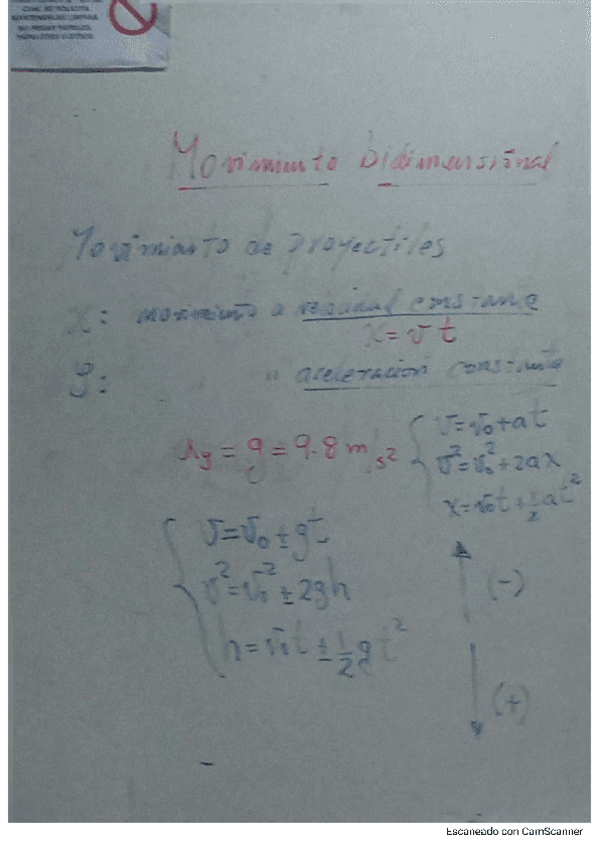 Movimiento bidimensional
Movimiento de proyectiles
X: movimiento a velocidad constante
X = v t
y: " aceleración constante
ay = g = 9.8 m/s²
v = v₀ + at
v² = v₀² + 2ax
x = v₀t + ½at²
v = v₀ ± gt
v² = v₀² ± 2gh
h = v₀t ± ½gt²
(-)
(+)
Escaneado con CamScanner